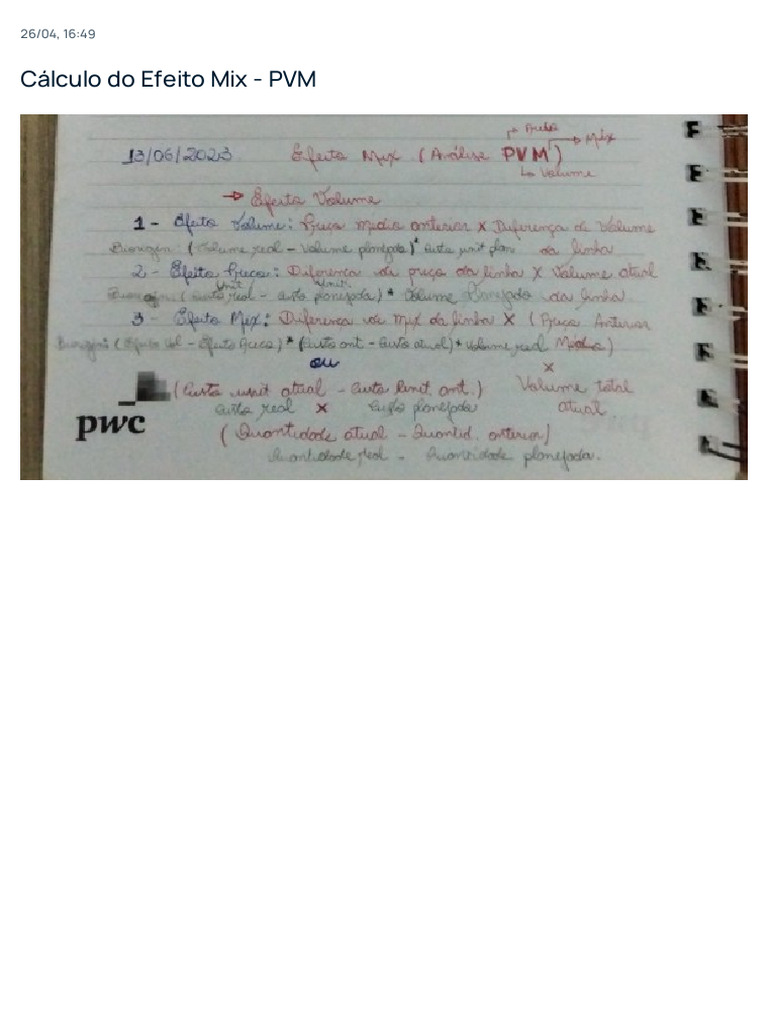 26/04, 16:49
Cálculo do Efeito Mix - PVM
13/06/2023 Efeito Mix (Análise PVM)
↱ Preço → Mix
↳ Volume
→ Efeito Volume
1 - Efeito Volume: Preço médio anterior X Diferença de Volume
Biorigin: (Volume real - Volume planejado) * Custo unit plan da linha
2 - Efeito Preço: Diferença de preço da linha X Volume atual
Biorigin: (Custo unit real - custo unit. planejado) * Volume planejado da linha
3 - Efeito Mix: Diferença de Mix da linha X (Preço Anterior
Biorigin: (Efeito Vol - Efeito Preço) * (Custo ant - Custo atual) * Volume real Médio)
ou X
(Custo unit atual - Custo unit. ant.) Volume total
Custo real X Custo planejado atual.
pwc
(Quantidade atual - Quantid. anterior)
Quantidade real - Quantidade planejada.